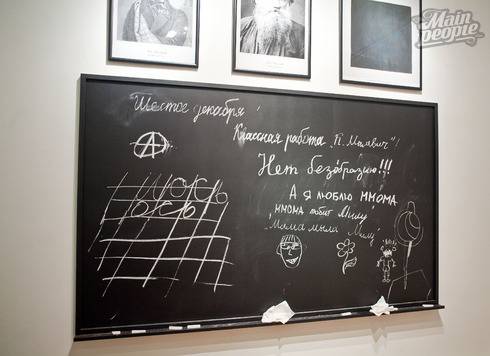 Main people
"Шестое декабря"
Классная работа „К. Малевич"!
Нет безобразию!!!
А я люблю ММОМА
„ММОМА любит Милу
"Мама мыла Милу"